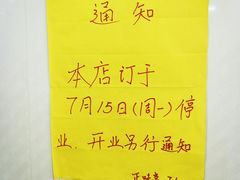 通知
本店订于
7月15日(周一)停
业、开业另行通知